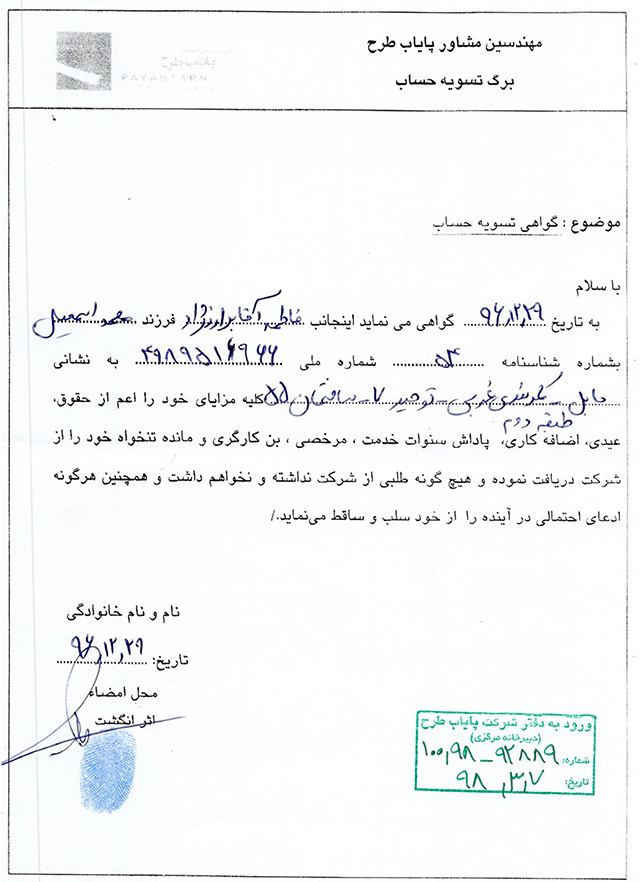 مهندسین مشاور پایاب طرح
برگ تسویه حساب
پایاب طرح
PAYABTARH
موضوع : گواهی تسویه حساب
با سلام
به تاریخ ۹۶,۱۲,۲۹ گواهی می نماید اینجانب فاطمه آقابرارنژاد فرزند محمد اسمعیل
بشماره شناسنامه ۵۴ شماره ملی به نشانی
بابل - غربی - توحید ۷ - ساختمان ۵۵ کلیه مزایای خود را اعم از حقوق,
طبقه دوم
عیدی, اضافه کاری, پاداش سنوات خدمت , مرخصی , بن کارگری و مانده تنخواه خود را از
شرکت دریافت نموده و هیچ گونه طلبی از شرکت نداشته و نخواهم داشت و همچنین هرگونه
ادعای احتمالی در آینده را از خود سلب و ساقط می‌نماید./
نام و نام خانوادگی
تاریخ: ۹۶,۱۲,۲۹
محل امضاء
اثر انگشت
ورود به دفتر شرکت پایاب طرح
(دبیرخانه مرکزی)
شماره: ۱۰۰,۹۸ - ۹۲۸۸۹
تاریخ: ۹۸,۳,۷